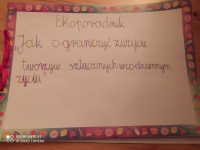 Ekoporadnik
„Jak ograniczyć zużycie
tworzyw sztucznych w codziennym
życiu"